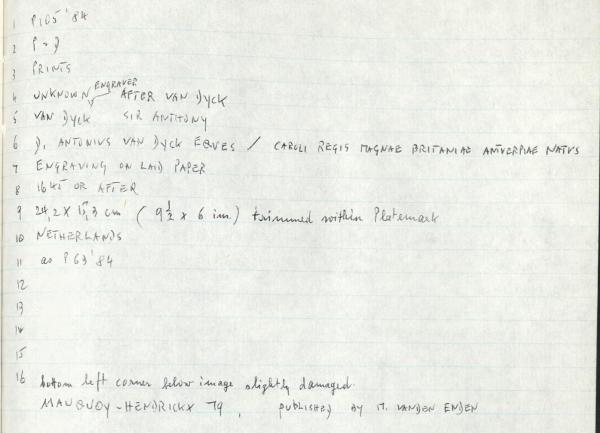 1 P105'84
2 P-D
3 PRINTS
4 UNKNOWN ENGRAVER AFTER VAN DYCK
5 VAN DYCK SIR ANTHONY
6 D. ANTONIUS VAN DYCK EQUES / CAROLI REGIS MAGNAE BRITANIAE ANTVERPIAE NATUS
7 ENGRAVING ON LAID PAPER
8 1645 OR AFTER
9 24,2 X 15,3 cm ( 9 1/2 x 6 im.) trimmed within Platemark
10 NETHERLANDS
11 as P63'84
12
13
14
15
16 bottom left corner below image slightly damaged.
MAUQUOY-HENDRICKX 79, PUBLISHED BY M. VANDEN ENDEN